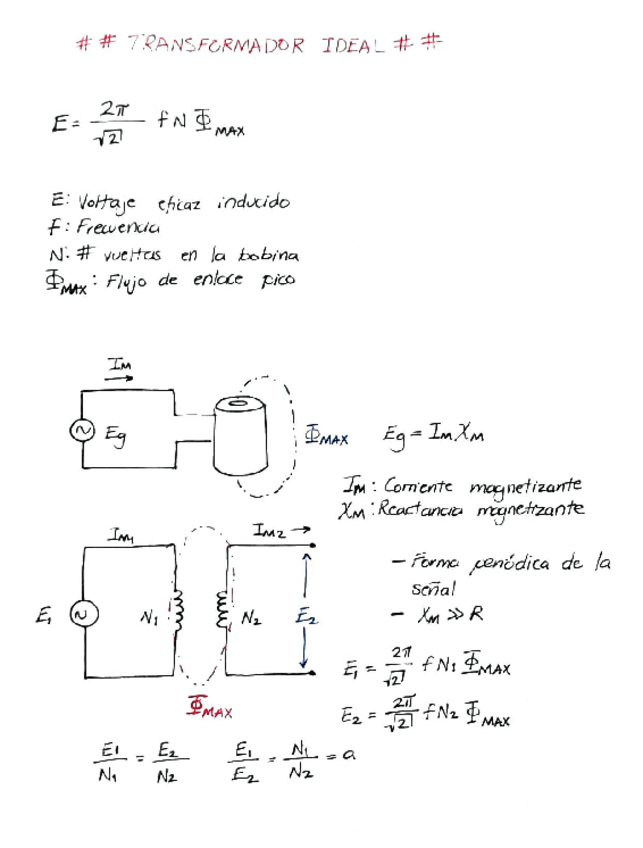 ## TRANSFORMADOR IDEAL ##
E = 2π/√2 f N Φ_MAX
E: Voltaje eficaz inducido
f: Frecuencia
N: # vueltas en la bobina
Φ_MAX: Flujo de enlace pico
I_M
Eg
Φ_MAX
Eg = I_M X_M
I_M: Corriente magnetizante
X_M: Reactancia magnetizante
I_M1
I_M2
E₁
N₁
N₂
E₂
Φ_MAX
- Forma periódica de la
señal
- X_M >> R
E₁ = 2π/√2 f N₁ Φ_MAX
E₂ = 2π/√2 f N₂ Φ_MAX
E1/N₁ = E₂/N₂
E₁/E₂ = N₁/N₂ = a